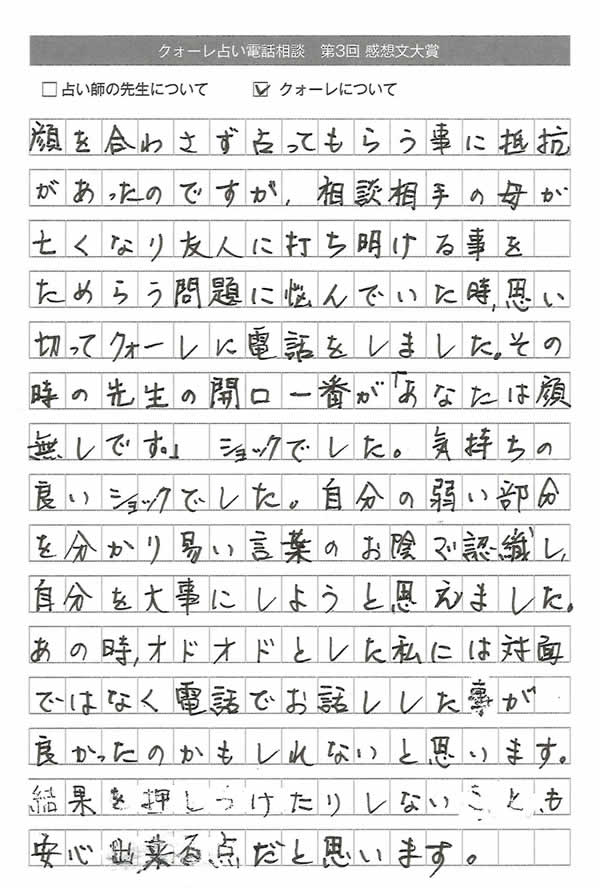 クォーレ占い電話相談　第3回 感想文大賞
占い師の先生について　クォーレについて
顔を合わさず占ってもらう事に抵抗
があったのですが、相談相手の母が
亡くなり友人に打ち明ける事を
ためらう問題に悩んでいた時、思い
切ってクォーレに電話をしました。その
時の先生の開口一番が「あなたは顔
無しです。」ショックでした。気持ちの
良いショックでした。自分の弱い部分
を分かり易い言葉のお陰で認織し、
自分を大事にしようと思えました。
あの時、オドオドとした私には対面
ではなく電話でお話しした事が
良かったのかもしれないと思います。
結果を押しつけたりしないことも
安心出来る点だと思います。